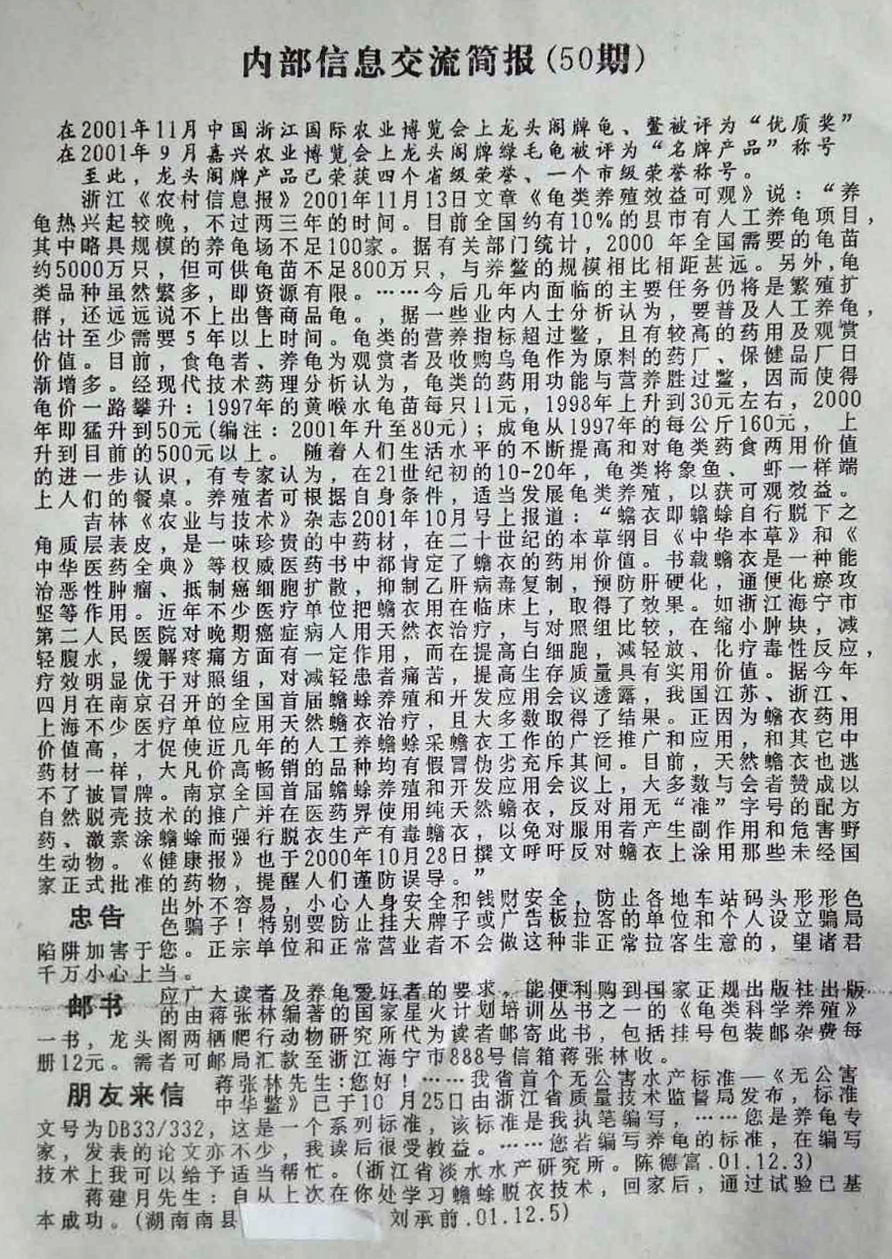 内部信息交流简报(50期)
在2001年11月中国浙江国际农业博览会上龙头阁牌龟、鳖被评为“优质奖”
在2001年9月嘉兴农业博览会上龙头阁牌绿毛龟被评为“名牌产品”称号
至此，龙头阁牌产品已荣获四个省级荣誉、一个市级荣誉称号。
浙江《农村信息报》2001年11月13日文章《龟类养殖效益可观》说：“养
龟热兴起较晚，不过两三年的时间。目前全国约有10%的县市有人工养龟项目，
其中略具规模的养龟场不足100家。据有关部门统计，2000 年全国需要的龟苗
约5000万只，但可供龟苗不足800万只，与养鳖的规模相比相距甚远。另外,龟
类品种虽然繁多，即资源有限。……今后几年内面临的主要任务仍将是繁殖扩
群，还远远说不上出售商品龟。，据一些业内人士分析认为，要普及人工养龟，
估计至少需要5年以上时间。龟类的营养指标超过鳖，且有较高的药用及观赏
价值。目前，食龟者、养龟为观赏者及收购乌龟作为原料的药厂、保健品厂日
渐增多。经现代技术药理分析认为，龟类的药用功能与营养胜过鳖，因而使得
龟价一路攀升：1997年的黄喉水龟苗每只11元，1998年上升到30元左右，2000
年即猛升到50元(编注：2001年升至80元)；成龟从1997年的每公斤160元，上
升到目前的500元以上。随着人们生活水平的不断提高和对龟类药食两用价值
的进一步认识，有专家认为，在21世纪初的10-20年，龟类将象鱼、虾一样端
上人们的餐桌。养殖者可根据自身条件，适当发展龟类养殖，以获可观效益。
吉林《农业与技术》杂志2001年10月号上报道：“蟾衣即蟾蜍自行脱下之
角质层表皮，是一味珍贵的中药材，在二十世纪的本草纲目《中华本草》和《
中华医药全典》等权威医药书中都肯定了蟾衣的药用价值。书载蟾衣是一种能
治恶性肿瘤、抵制癌细胞扩散，抑制乙肝病毒复制，预防肝硬化，通便化瘀攻
坚等作用。近年不少医疗单位把蟾衣用在临床上，取得了效果。如浙江海宁市
第二人民医院对晚期癌症病人用天然衣治疗，与对照组比较，在缩小肿块，减
轻腹水，缓解疼痛方面有一定作用，而在提高白细胞，减轻放、化疗毒性反应，
疗效明显优于对照组，对减轻患者痛苦，提高生存质量具有实用价值。据今年
四月在南京召开的全国首届蟾蜍养殖和开发应用会议透露，我国江苏、浙江、
上海不少医疗单位应用天然蟾衣治疗，且大多数取得了结果。正因为蟾衣药用
价值高，才促使近几年的人工养蟾蜍采蟾衣工作的广泛推广和应用，和其它中
药材一样，大凡价高畅销的品种均有假冒伪劣充斥其间。目前，天然蟾衣也逃
不了被冒牌。南京全国首届蟾蜍养殖和开发应用会议上，大多数与会者赞成以
自然脱壳技术的推广并在医药界使用纯天然蟾衣，反对用无“准”字号的配方
药、激素涂蟾蜍而强行脱衣生产有毒蟾衣，以免对服用者产生副作用和危害野
生动物。《健康报》也于2000年10月28日撰文呼吁反对蟾衣上涂用那些未经国
家正式批准的药物，提醒人们谨防误导。”
忠告 出外不容易，小心人身安全和钱财安全，防止各地车站码头形形色
色骗子！特别要防止挂大牌子或广告板拉客的单位和个人设立骗局
陷阱加害于您。正宗单位和正常营业者不会做这种非正常拉客生意的，望诸君
千万小心上当。
邮书 应广大读者及养龟爱好者的要求，能便利购到国家正规出版社出版
的由蒋张林编著的国家星火计划培训丛书之一的《龟类科学养殖》
一书，龙头阁两栖爬行动物研究所代为读者邮寄此书，包括挂号包装邮杂费每
册12元。需者可邮局汇款至浙江海宁市888号信箱蒋张林收。
朋友来信 蒋张林先生：您好！……我省首个无公害水产标准—《无公害
中华鳖》已于10 月25日由浙江省质量技术监督局发布，标准
文号为DB33/332，这是一个系列标准，该标准是我执笔编写，……您是养龟专
家，发表的论文亦不少，我读后很受教益。……您若编写养龟的标准，在编写
技术上我可以给予适当帮忙。(浙江省淡水水产研究所。陈德富.01.12.3)
蒋建月先生：自从上次在你处学习蟾蜍脱衣技术，回家后，通过试验已基
本成功。(湖南南县 刘承前.01.12.5)